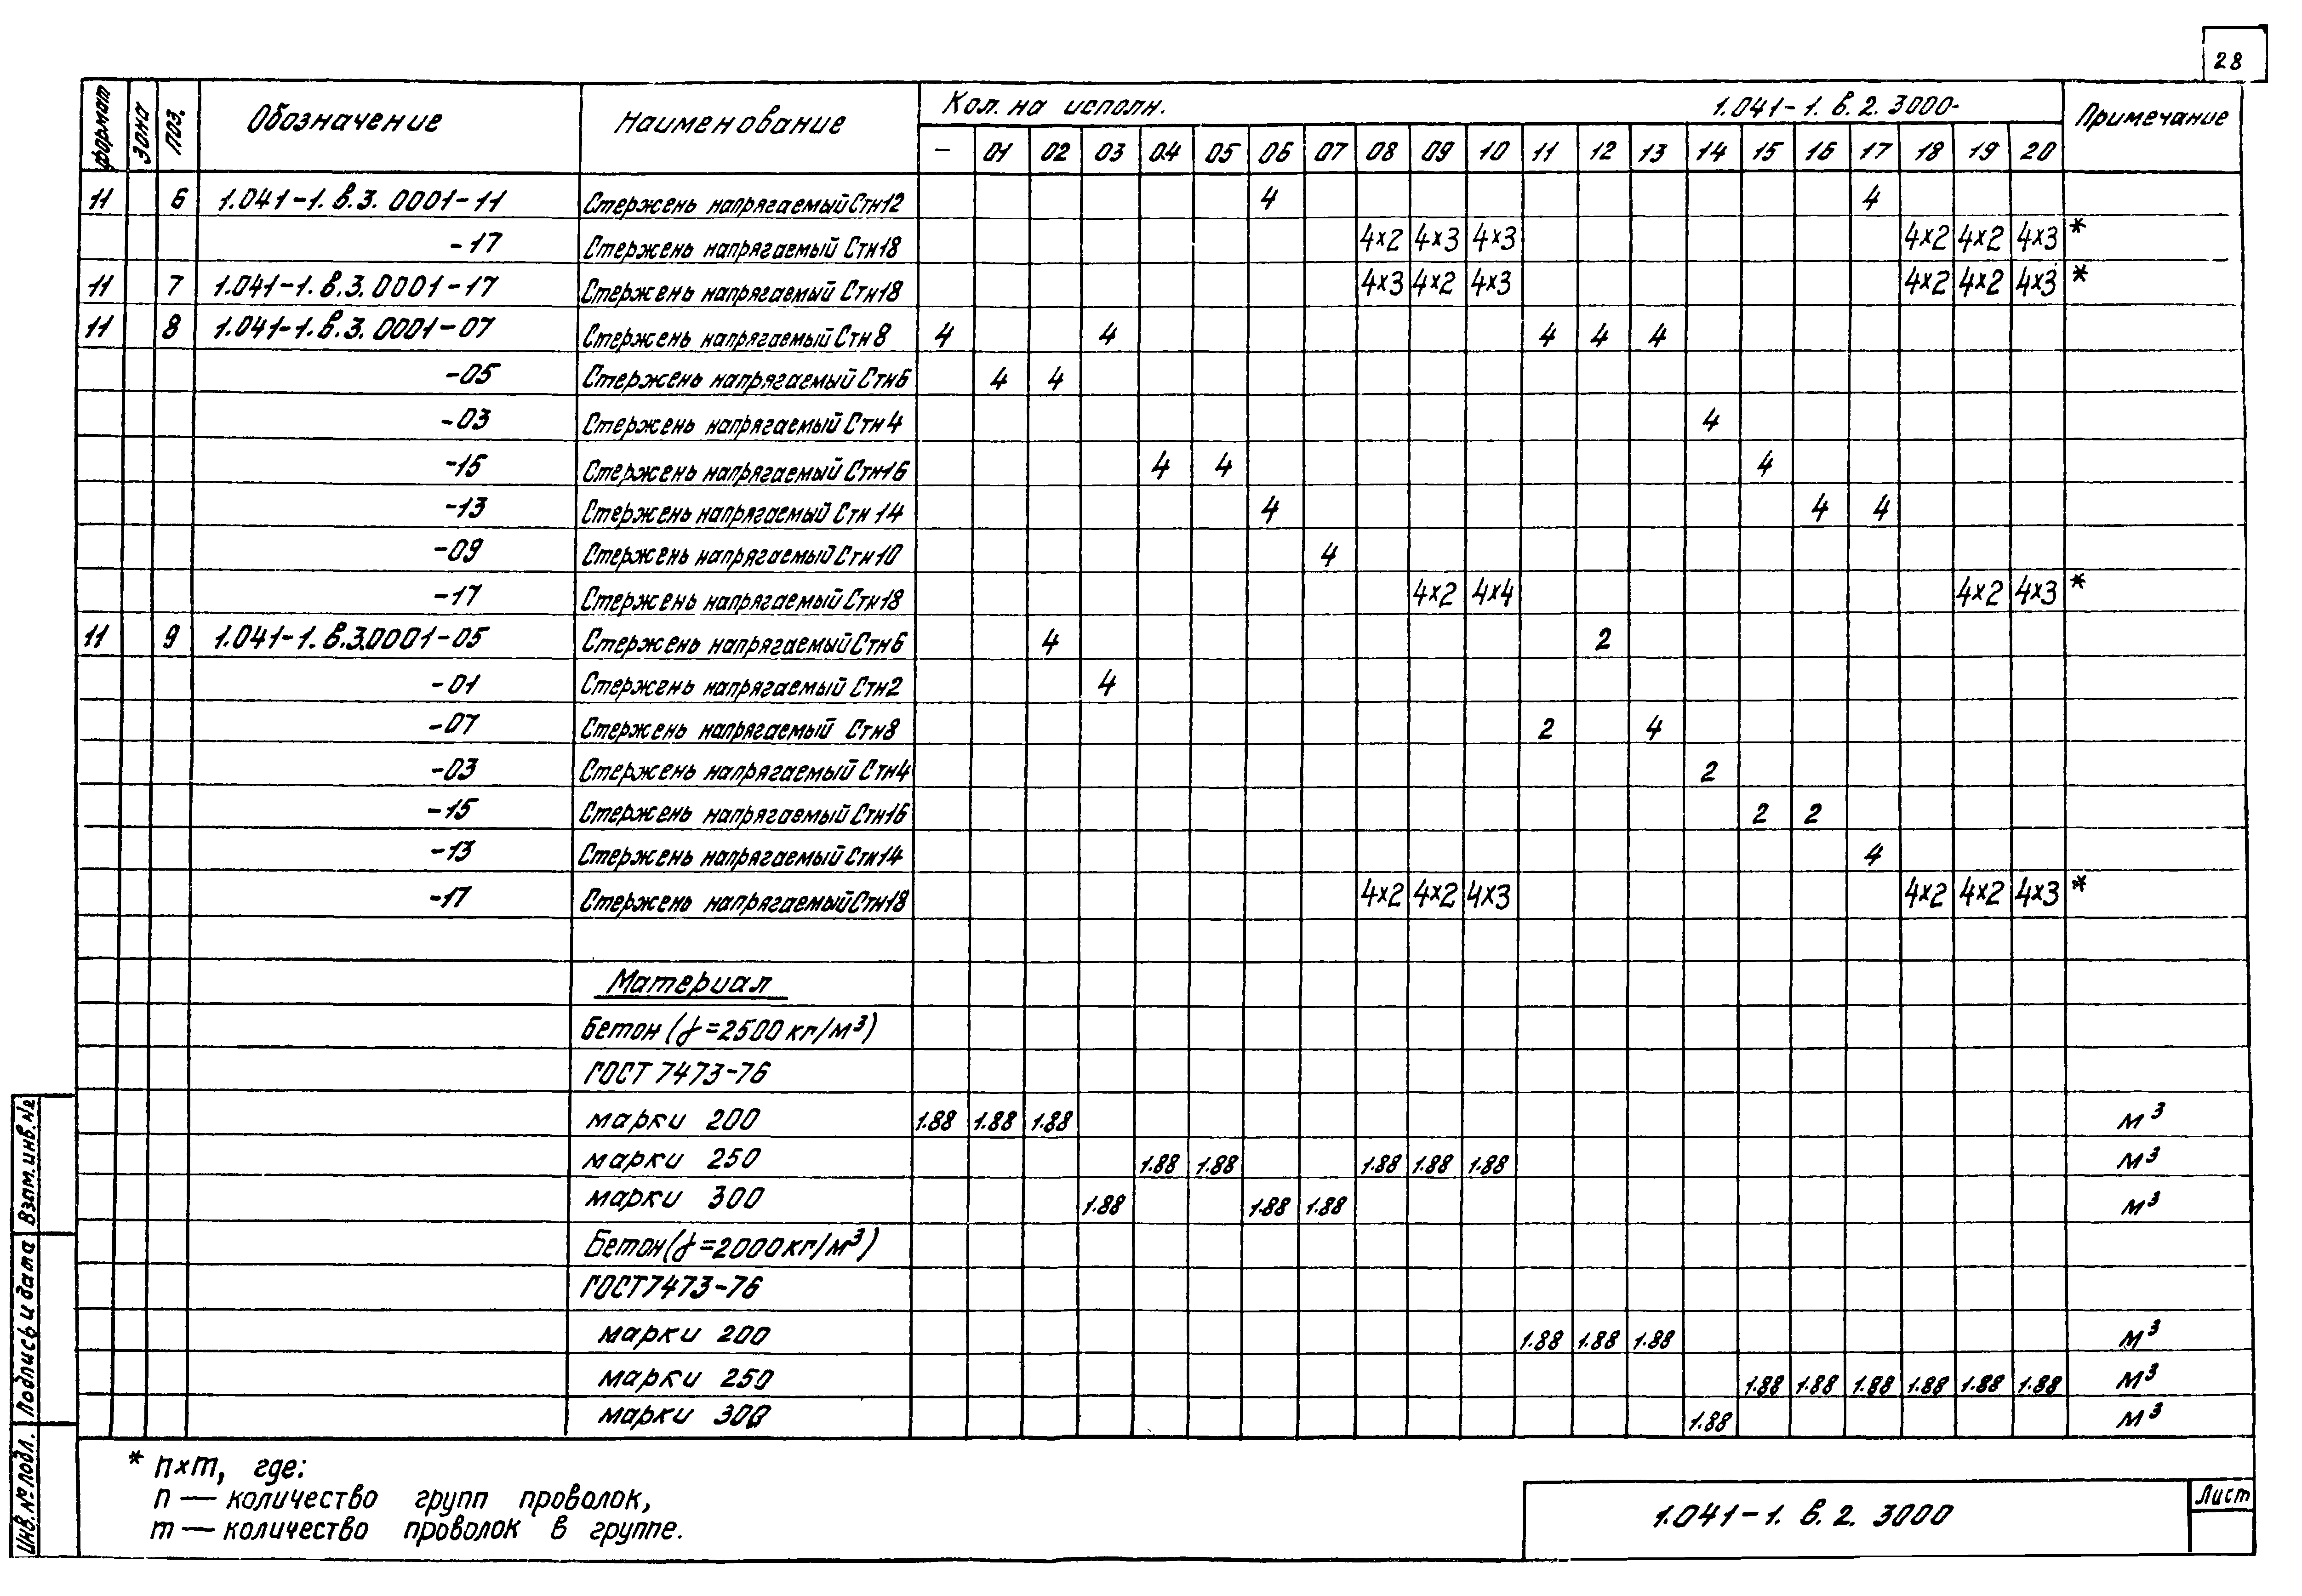 28
формат зона поз. Обозначение Наименование Кол. на исполн. 1.041-1. в.2. 3000- Примечание
— 01 02 03 04 05 06 07 08 09 10 11 12 13 14 15 16 17 18 19 20
11 6 1.041-1. в.3. 0001-11 Стержень напрягаемый Стн12 4 4
-17 Стержень напрягаемый Стн18 4×2 4×3 4×3 4×2 4×2 4×3 *
11 7 1.041-1. в.3. 0001-17 Стержень напрягаемый Стн18 4×3 4×2 4×3 4×2 4×2 4×3 *
11 8 1.041-1. в.3. 0001-07 Стержень напрягаемый Стн8 4 4 4 4 4
-05 Стержень напрягаемый Стн6 4 4
-03 Стержень напрягаемый Стн4 4
-15 Стержень напрягаемый Стн16 4 4 4
-13 Стержень напрягаемый Стн 14 4 4 4
-09 Стержень напрягаемый Стн10 4
-17 Стержень напрягаемый Стн18 4×2 4×4 4×2 4×3 *
11 9 1.041-1. в.3.0001-05 Стержень напрягаемый Стн6 4 2
-01 Стержень напрягаемый Стн2 4
-07 Стержень напрягаемый Стн8 2 4
-03 Стержень напрягаемый Стн4 2
-15 Стержень напрягаемый Стн16 2 2
-13 Стержень напрягаемый Стн14 4
-17 Стержень напрягаемый Стн18 4×2 4×2 4×3 4×2 4×2 4×3 *
Материал
Бетон (γ=2500 кг/м³)
ГОСТ 7473-76
марки 200 1.88 1.88 1.88 м³
марки 250 1.88 1.88 1.88 1.88 1.88 м³
марки 300 1.88 1.88 1.88 м³
Бетон (γ=2000кг/м³)
ГОСТ7473-76
марки 200 1.88 1.88 1.88 м³
марки 250 1.88 1.88 1.88 1.88 1.88 1.88 м³
марки 300 1.88 м³
* n×m, где:
n — количество групп проволок,
m — количество проволок в группе.
1.041-1. в. 2. 3000
Лист
Взам.инв.№
Подпись и дата
Инв.№ подл.